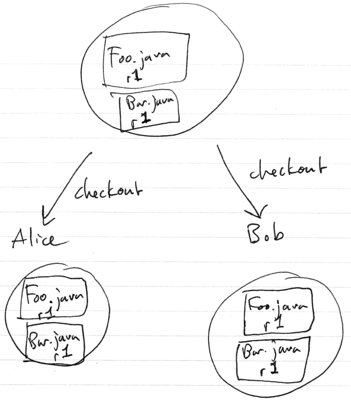 Foo.java
r1
Bar.java
r1
checkout
checkout
Alice
Bob
Foo.java
r1
Bar.java
r1
Foo.java
r1
Bar.java
r1